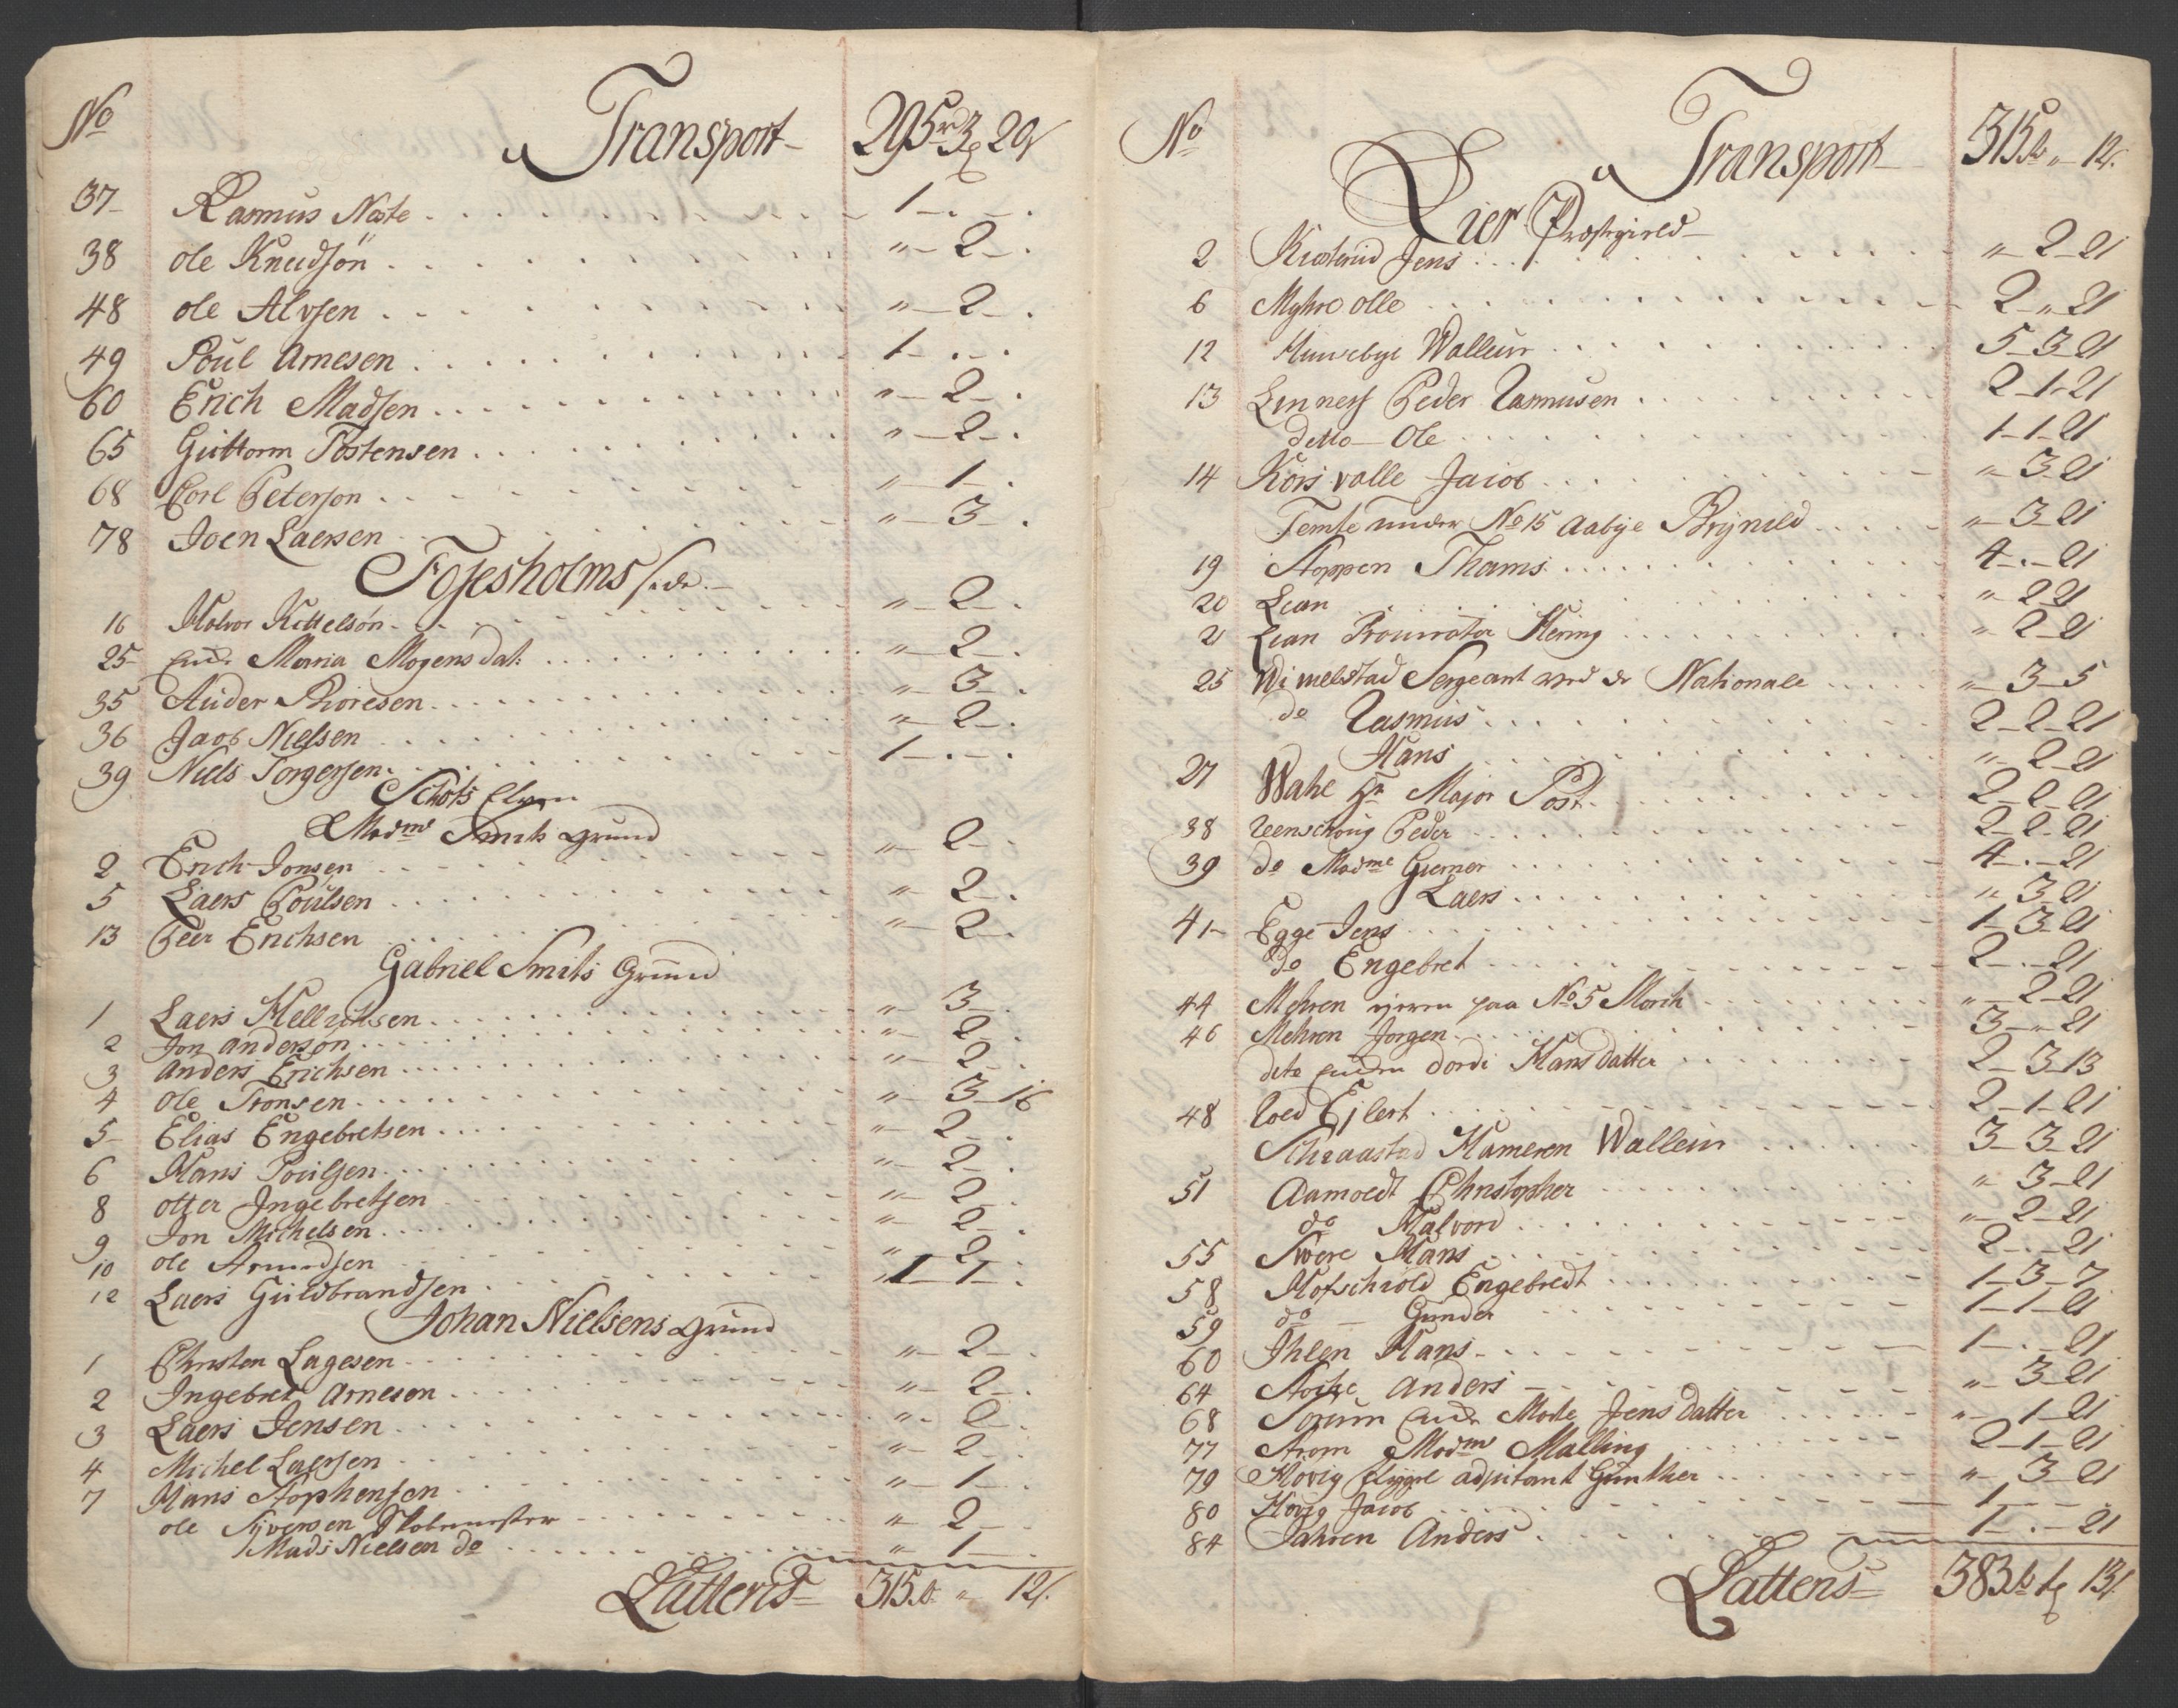 No Transport 295 3 20
37 Rasmus Næste 1 - . - .
38 ole Knudsøn " - 2 - .
48 ole Alvsen " - 2 - .
49 Poul Arnesen 1 - . - .
60 Erich Madsen " - 2 - .
65 Guttorm Tostensen " - 2 - .
68 Carl Peterson " - 1 - .
78 Joen Laersen " - 3 - .
Fossesholms
16 Halvor Kittelsøn " - 2 - .
25 Maria Mogensdat: " - 2 - .
35 Auder Thoresen " - 3 - .
36 Jacob Nielsen " - 2 - .
39 Niels Torgersen 1 - . - .
Schots Elven
Madme Smits Grund
2 Erich Jonsen " - 2 - .
5 Laers Poulsen " - 2 - .
13 Peer Erichsen " - 2 - .
Gabriel Smits Grund
1 Laers Mellichsen " - 3 - .
2 Jon andersøn " - 2 - .
3 anders Erichsen " - 2 - .
4 ole Tronsen " - 3 - 16
5 Elias Engebretsen " - 2 - .
6 Hans Poulsen " - 2 - .
8 otter Ingebretsen " - 2 - .
9 Jon Michelsen " - 2 - .
10 ole Amundsen " - 2 - .
12 Laers Guldbrandsen 1 - 1 - .
Johan Nielsens Grund
1 Christen Lagesen " - 2 - .
2 Ingebret Arnesen " - 2 - .
3 Laers Jensen " - 2 - .
4 Michel Laersen " - 2 - .
7 Hans Stophensen " - 1 - .
ole Syversen " - 2 - .
Mads Nielsen do " - 1 - .
Lattens 315 " 12
No Transport 315 " 12
Lier Præstegield
2 Kiosterud Jens " - 2 - 21
6 Myhre olle 2 - " - 21
12 Huusebye Walleur 5 - 3 - 21
13 Linnes Peder Rasmusen 2 - 1 - 21
ditto - Ole 1 - 1 - 21
14 Kors valle Jacob " - 3 - 21
Temte under No 15 Aabye Brynild " - 3 - 21
19 Stoppen Thams 4 - . - 21
20 Lian " - 2 21
21 Lian Procurator Hering " - 2 - 21
25 Wimelstad Sergeant ved de Nationale " - 3 - 5
do Rasmus 2 - 2 - 21
Hans " - 2 - 21
27 Wahl Hr Major Post 2 - 2 - 21
38 Reenschoug Peder 2 - 2 - 21
39 do Madme Gierner 4 - . - 21
Laers " - 3 - 21
41 Egge Jens 1 - 3 - 21
do Engebret 2 - . - 21
44 Mehren paa No 5 March " - 2 - 21
46 Mehren Jørgen 3 - " - 21
dito Dordi Hans datter 2 - 3 - 13
48 Roed Ejlert 2 - 1 - 21
Schraastad Hameren Walleur 3 - 3 - 21
51 Aamoedt Christopher " - 3 - 21
do Halvord " - 2 - 21
55 Svere Hans 2 - . - 21
58 Hofschiold Engebredt 1 - 3 - 7
59 do - Gunder 1 - 1 - 21
60 Ihlen Hans 1 - . - 21
64 anders " - 3 - 21
68 Sørum Jens datter " - 1 - 21
77 Strøm Madme Malling 2 - 1 - 21
79 Høvig adjutant Gunther " - 3 - 21
80 Høvig Jacob 1 - . - .
84 Jahren Anders 1 - . - 21
Lattens 383 1 13